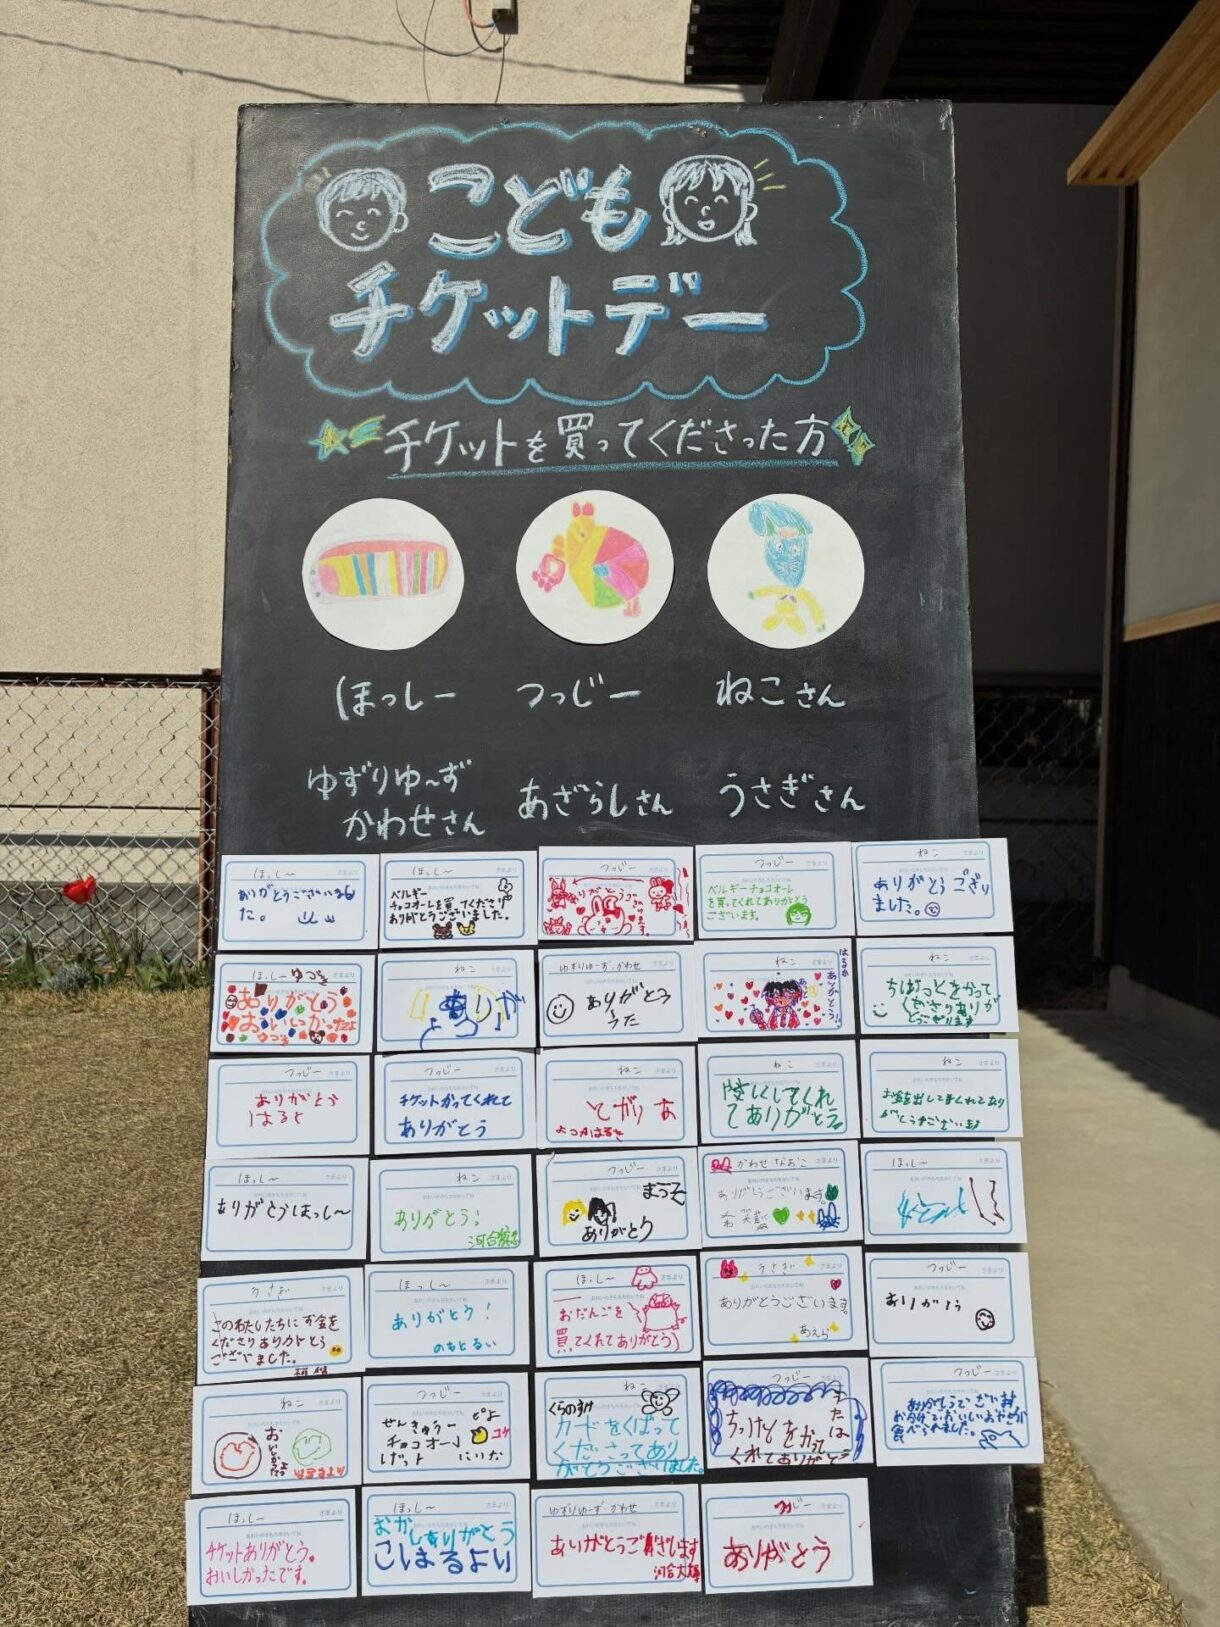 こども
チケットデー
チケットを買ってくださった方
ほっしー
つっじー
ねこさん
ゆずりゆ〜ず
かわせさん
あざらしさん
うさぎさん
ほっし〜
さまより
ありがとうございました。
ほっし〜
ベルギー
チョコオーレを買ってくださり
ありがとうございました。
つっじー
さまより
ありがとうございます。
つっじー
さまより
ベルギーチョコオーレ
を買ってくれてありがとう
ございます。
ねこ
さまより
ありがとう ござり
ました。
ほっし〜
さまより
ありがとう
おいしかったよ
ねこ
さまより
ゆずりゆーず・かわせ
ありがとう
うた
ありがとう!
ねこ
さまより
ちけっとをかって
くださりありが
とうござります
つっじー
さまより
ありがとう
はると
つっじー
さまより
チケットかってくれて
ありがとう
ねこ
さまより
ねこ
さまより
してくれ
てありがとう
ねこ
さまより
お金を出してくれてあり
がとうございます
ほっし〜
さまより
ありがとうほっし〜
ねこ
さまより
ありがとう!
つっじー
さまより
ありがとう
かわせ なおこ
さまより
ありがとうございます。
ほっし〜
さまより
うさぎ
さまより
このわたしたちにお金を
くださりありがとう
ございました。
ほっし〜
さまより
ありがとう!
のもとるい
ほっし〜
さまより
おだんごを
買ってくれてありがとう
うさぎ
さまより
ありがとうございます。
あえら
つっじー
さまより
ありがとう
ねこ
さまより
つっじー
せんきゅうー
チョコオーレ
ぴよ
コケ
にいな
ねこ
さまより
くらのすけ
カードをくばって
くださってあり
がとうございました。
つっじー
さまより
ちっけとをかって
くれてありがとう
つっじー
さまより
ほっし〜
さまより
チケットありがとう。
おいしかったです。
ほっし〜
さまより
おかしありがとう
こはるより
ゆずりゆーず・かわせ
さまより
ありがとうございます
河合大輝
つっじー
さまより
ありがとう